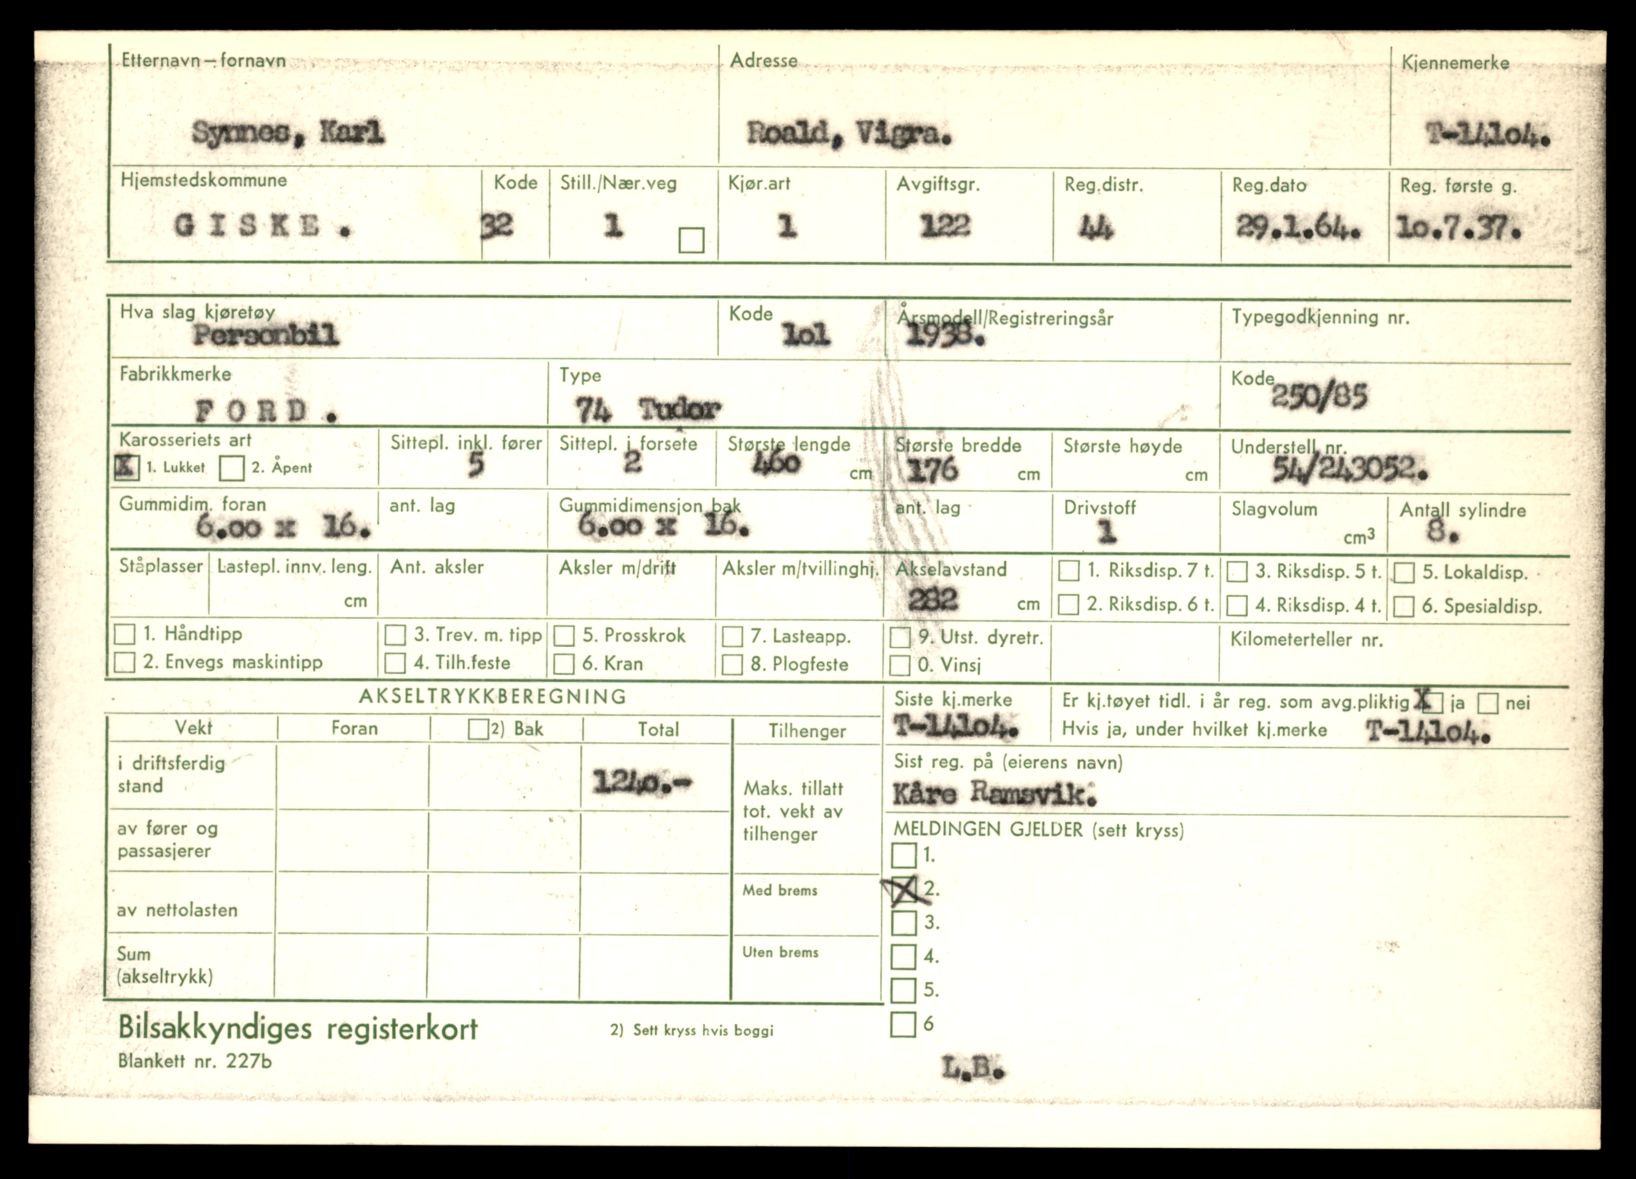 Etternavn – fornavn Adresse Kjennemerke
Synnes, Karl Roald, Vigra. T-14104.
Hjemstedskommune Kode Still./Nær.veg Kjør.art Avgiftsgr. Reg.distr. Reg.dato Reg. første g.
GISKE. 32 1 1 122 44 29.1.64. 1o.7.37.
Hva slag kjøretøy Kode Årsmodell/Registreringsår Typegodkjenning nr.
Personbil 1o1 1938.
Fabrikkmerke Type Kode
FORD. 74 Tudor 250/85
Karosseriets art Sittepl. inkl. fører Sittepl. i forsete Største lengde Største bredde Største høyde Understell nr.
X 1. Lukket 2. Åpent 5 2 460 cm 176 cm cm 54/243052.
Gummidim. foran ant. lag Gummidimensjon bak ant. lag Drivstoff Slagvolum Antall sylindre
6.oo x 16. 6.oo x 16. 1 cm3 8.
Ståplasser Lastepl. innv. leng. Ant. aksler Aksler m/drift Aksler m/tvillinghj. Akselavstand 1. Riksdisp. 7 t. 3. Riksdisp. 5 t. 5. Lokaldisp.
cm 282 cm 2. Riksdisp. 6 t. 4. Riksdisp. 4 t. 6. Spesialdisp.
1. Håndtipp 3. Trev. m. tipp 5. Prosskrok 7. Lasteapp. 9. Utst. dyretr. Kilometerteller nr.
2. Envegs maskintipp 4. Tilh.feste 6. Kran 8. Plogfeste 0. Vinsj
AKSELTRYKKBEREGNING Siste kj.merke Er kj.tøyet tidl. i år reg. som avg.pliktig X ja nei
Vekt Foran 2) Bak Total Tilhenger T-14104. Hvis ja, under hvilket kj.merke T-14104.
i driftsferdig stand 1240.- Sist reg. på (eierens navn)
Maks. tillatt tot. vekt av tilhenger Kåre Ramsvik.
av fører og passasjerer MELDINGEN GJELDER (sett kryss)
1.
av nettolasten Med brems X 2.
3.
Sum (akseltrykk) Uten brems 4.
5.
Bilsakkyndiges registerkort 2) Sett kryss hvis boggi 6
Blankett nr. 227b L.B.